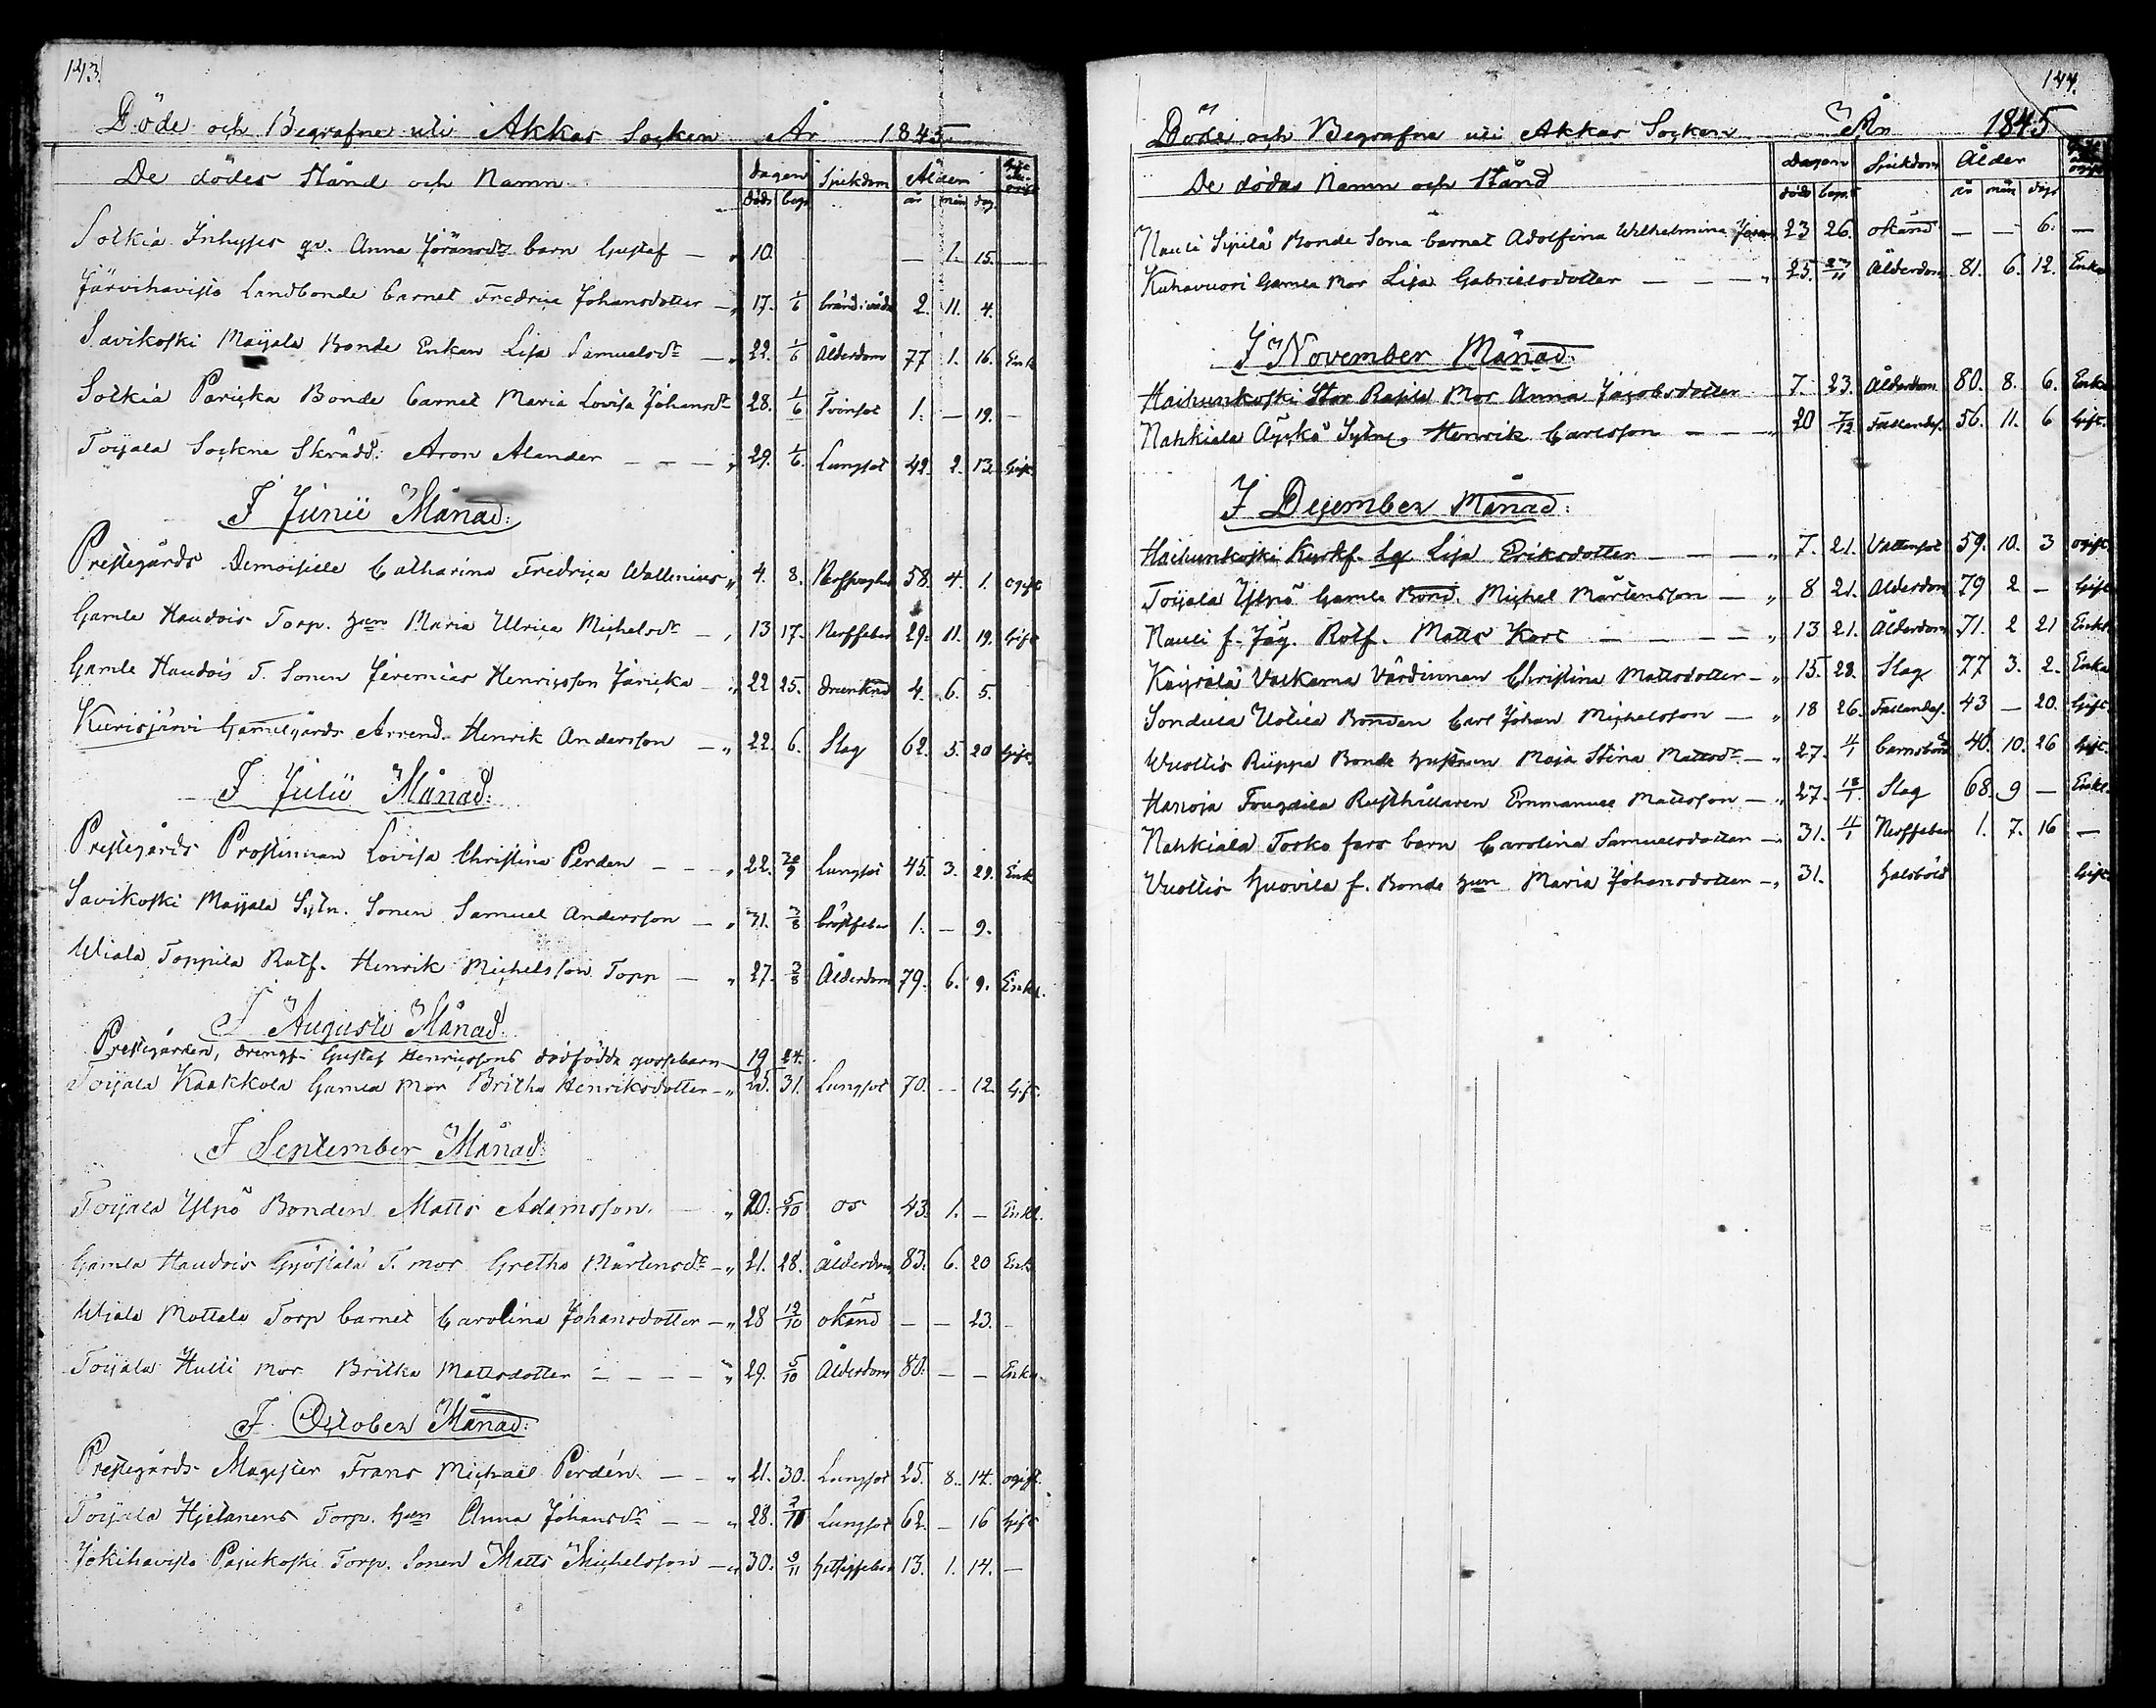 143.
Döde och Begrafne uti Akkas Socken År 1845
De dödes Stånd och Namn. Dagen Sjukdom Ålder
död begr år mån dag.
Sotkia Inhyses qv. Anna Jöransdr barn Gustaf — " 10. — 1. 15. —
Järvihavisto Landbonde barnet Fredrica Johansdotter — " 17. 1/6 bränd i våda 2. 11. 4.
Savikoski Maijala Bonde Enkan Lisa Samuelsdr — " 22. 1/6 Ålderdom 77 1. 16. Enk
Sotkia Paricka Bonde barnet Maria Lovisa Johansdr 28. 1/6 Tvinsot 1. — 19. —
Toijala Sockne Skrädd. Aron Alander — — — " 29. 1/6. Lungsot 42. 2. 13. Gift
I Junii Månad:
Prestegårds Demoiselle Catharina Fredrica Wallenius " 4. 8. 58. 4. 1. ogift
Gamle Haudois Torp. hun Maria Ulrica Michelsdr — " 13 17. Nerffeber 29. 11. 19. Gift
Gamle Haudois T. Sonen Jeremias Henricsson Järicka — " 22 25. drunknd 4. 6. 5.
Kurisjärvi Gammelgårds Arrend. Henrik Andersson — " 22. 6. Slag 62. 5. 20 Gift.
I Julii Månad:
Prestegårds Prostinnan Lovisa Christina Perden — — " 22. 20/9 Lungsot 45. 3. 29. Enk
Savikoski Maijala Sytn. Sonen Samuel Andersson — " 31. 3/8 bröstfeber 1. — 9.
Wiala Toppila Rotf. Henrik Michelsson Topp — " 27. 3/8 Ålderdom 79. 6. 9. Enkl.
I Augusti Månad:
Prestegården, drengs Gustaf Henricssons dödfödda gossebarn 19 24.
Toijala Kaakkola Gamla mor Britha Henriksdotter — " 25. 31. Lungsot 70. — 12. Gift.
I September Månad:
Toijala Ylpö Bonden Matts Adamsson. — " 20. 5/10 os 43. 1. — Enkl.
Gamla Haudois Gyöstälä T. mor Gretha Mårtensdr — " 21. 28. Ålderdom 83. 6. 20 Enk
Wiala Mattala Torp barnet Carolina Johansdotter — " 28 12/10 okänd — — 23. —
Toijala Hulli mor Britha Mattsdotter — — — — " 29. 5/10 Ålderdom 80. — — Enka
I October Månad:
Prestegårds Magister Frans Michael Perdén. — — " 21. 30. Lungsot 25. 8. 14. ogift.
Toijala Hjetanens Torp. hun Anna Johansdr — — " 28. Lungsot 62. — 16 Gift
Jokihavisto Pajukoski Torp. Sonen Matts Michelsson — " 30. 9/11 hetsigfeber 13. 1. 14. —
144.
Döde och Begrafne uti Akkas Socken År 1845
De dödas Namn och Stånd Dagen Sjukdom Ålder
död begr. år mån dag
Nauli Sipilä Bonde Sons barnet Adolfina Wilhelmina 23 26. okänd — — 6. —
Kuhavuori Gamla Mor Lisa Gabrielsdotter — — — " 25. Ålderdom 81. 6. 12. Enka
I November Månad:
Haihunkoski Stor Rapila Mor Anna Jacobsdotter 7. 23. Ålderdom 80. 8. 6. Enka
Nahkiala Äyskö Sytn. Henrik Carlsson — — — " 20 7/12 Fallandes. 56. 11. 6 Gift.
I December Månad:
Haihunkoski Lisa Eriksdotter — — — " 7. 21. Vattensot 59. 10. 3 ogift
Toijala Ylpö Gamla Bond. Michel Mårtensson — " 8 21. Ålderdom 79 2 — Gift
Nauli f. Jäg. Rotf. Matts Karl — — — — " 13 21. Ålderdom 71. 2 21 Enkl
Kaijrälä Valkama Värdinnan Christina Mattsdotter — " 15. 28. Slag 77 3. 2. Enka
Sondula Uotila Bonden Carl Johan Michelsson — " 18 26. Fallandes. 43 — 20. Gift
Wuoltis Riippa Bonde hustrun Maja Stina Mattsdr — " 27. 4/1 barnsbörd 40. 10. 26 Gift.
Hanoja Fougdila Rusthållaren Emmanuel Mattsson — " 27. 18/1 Slag 68. 9 — Enkl.
Nahkiala Torko fars barn Carolina Samuelsdotter — 31. 4/1 Nerffeber 1. 7. 16 —
Vuoltis Huovila f. Bonde hun Maria Johansdotter — " 31. Halsböld Gift